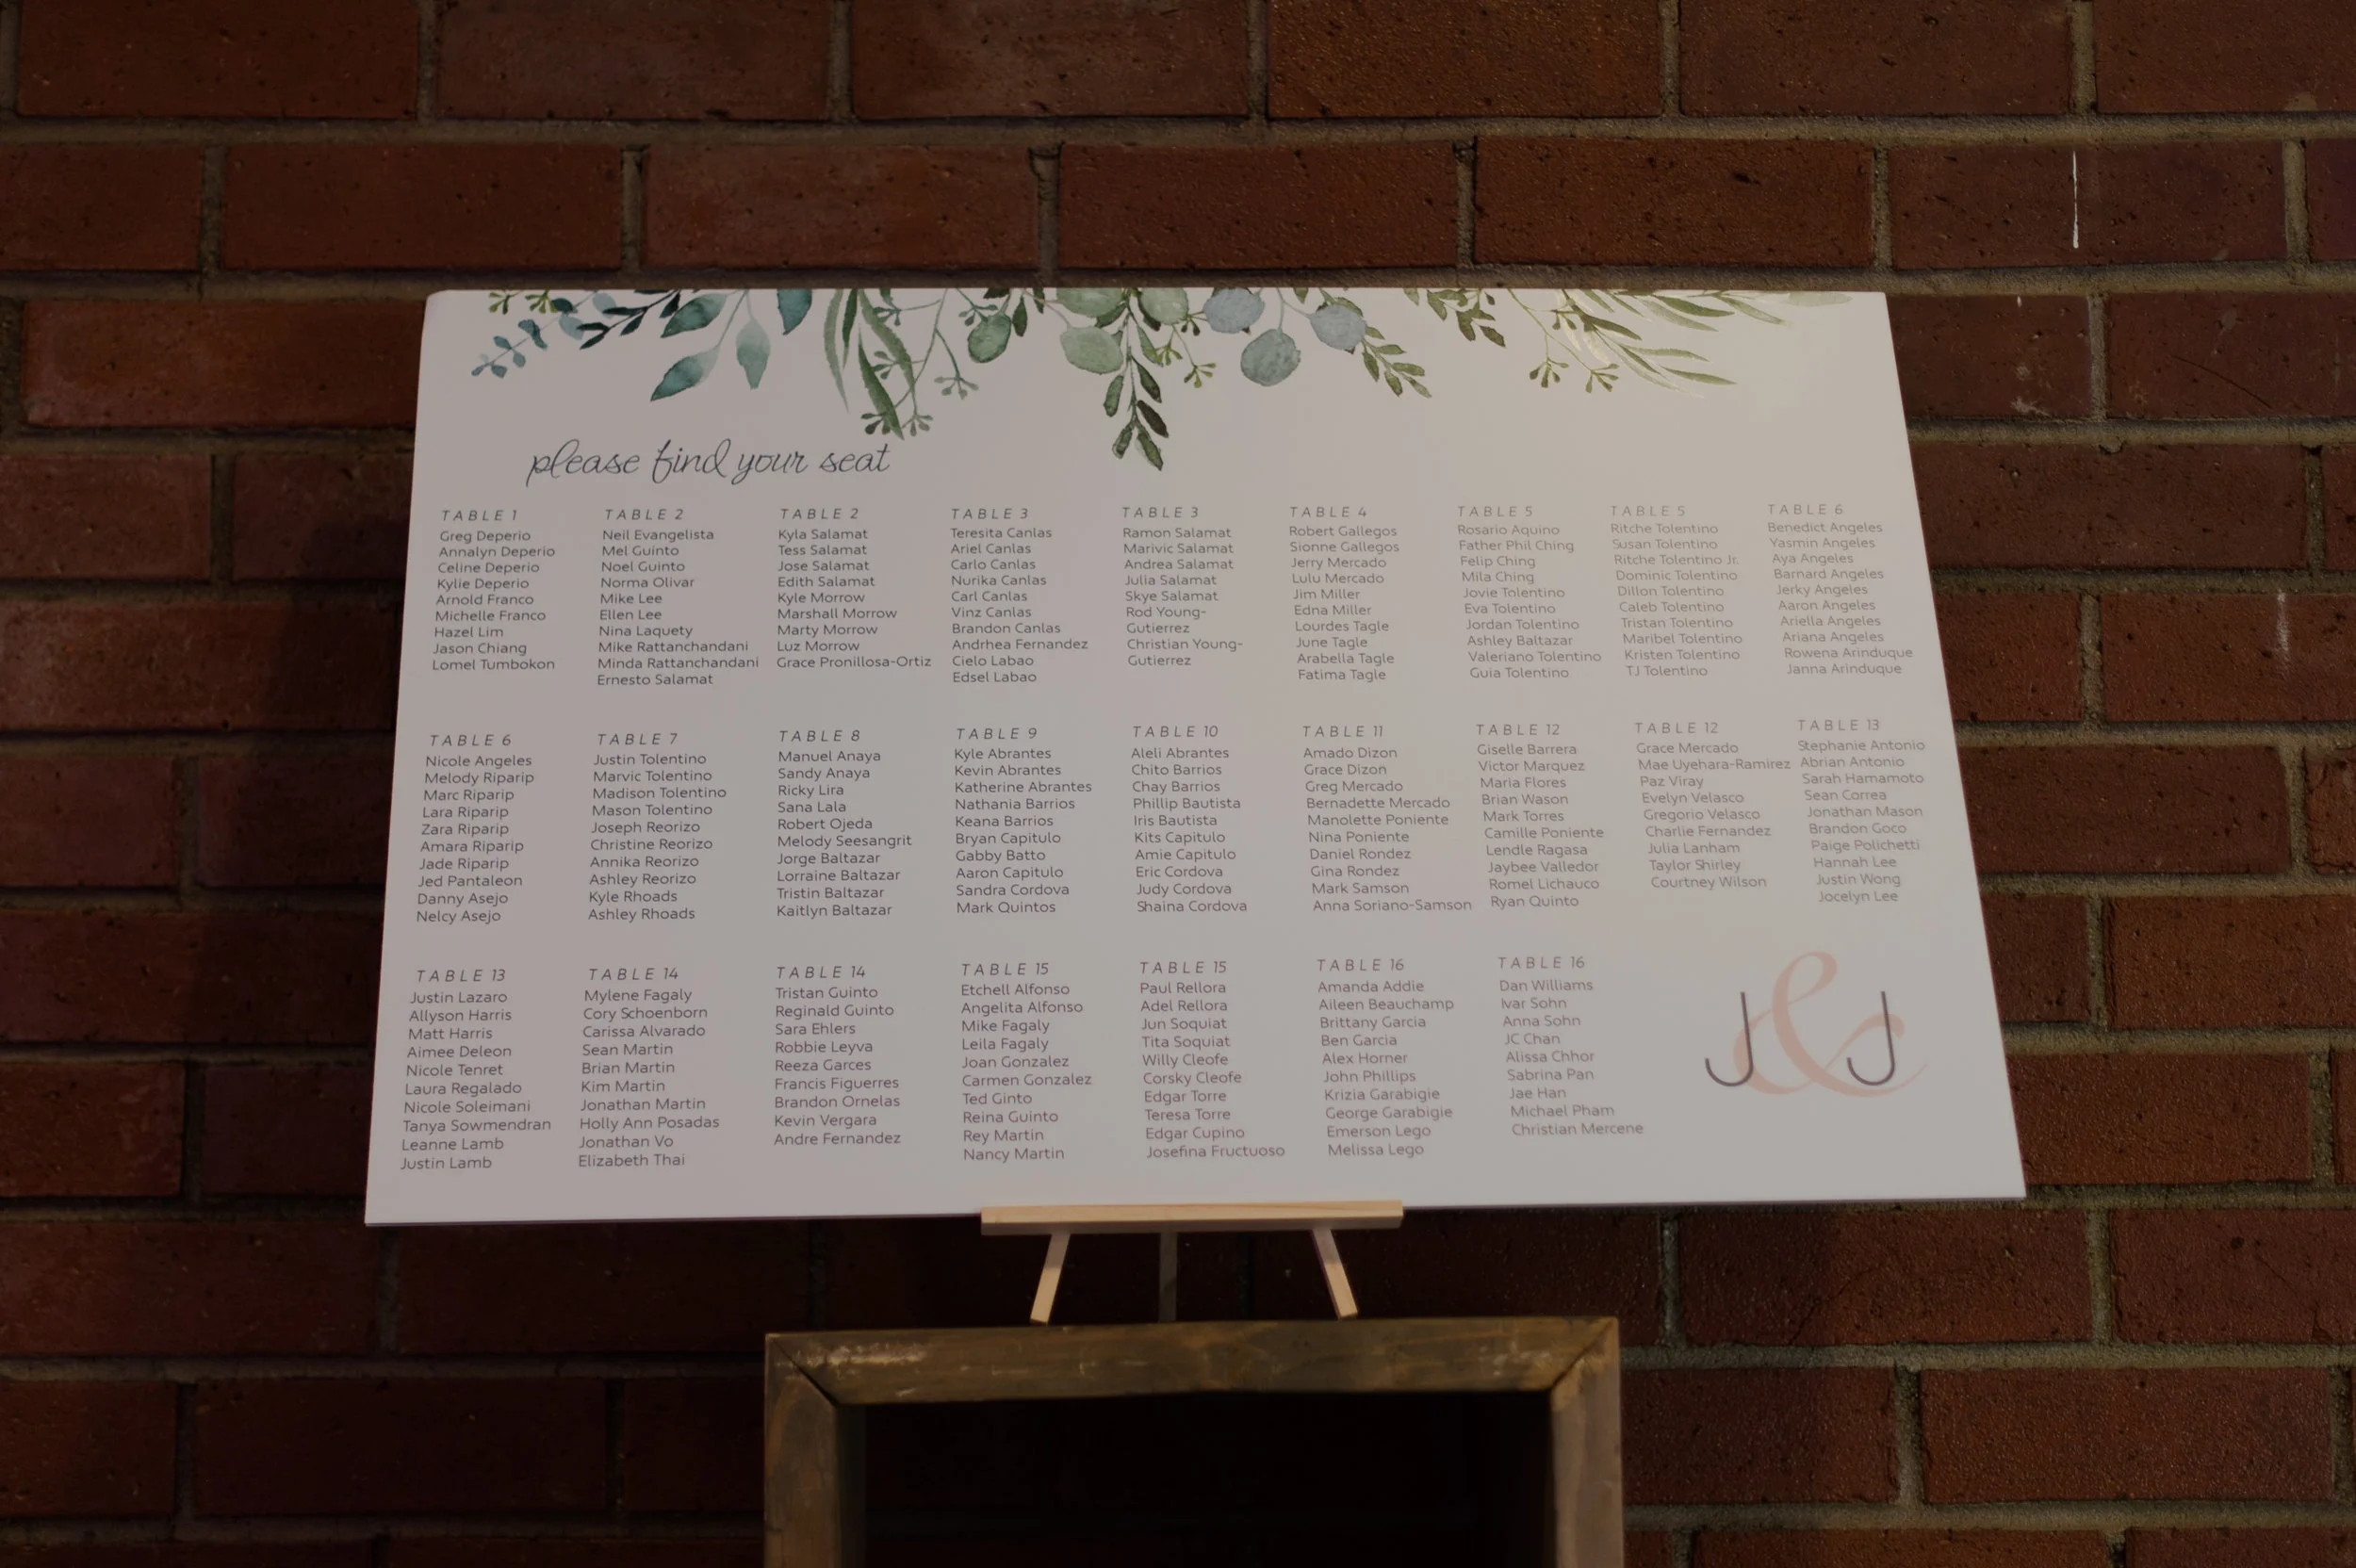 please find your seat
TABLE 1
Greg Deperio
Annalyn Deperio
Celine Deperio
Kylie Deperio
Arnold Franco
Michelle Franco
Hazel Lim
Jason Chiang
Lomel Tumbokon
TABLE 2
Neil Evangelista
Mel Guinto
Noel Guinto
Norma Olivar
Mike Lee
Ellen Lee
Nina Laquety
Mike Rattanchandani
Minda Rattanchandani
Ernesto Salamat
TABLE 2
Kyla Salamat
Tess Salamat
Jose Salamat
Edith Salamat
Kyle Morrow
Marshall Morrow
Marty Morrow
Luz Morrow
Grace Pronillosa-Ortiz
TABLE 3
Teresita Canlas
Ariel Canlas
Carlo Canlas
Nurika Canlas
Carl Canlas
Vinz Canlas
Brandon Canlas
Andrhea Fernandez
Cielo Labao
Edsel Labao
TABLE 3
Ramon Salamat
Marivic Salamat
Andrea Salamat
Julia Salamat
Skye Salamat
Rod Young-
Gutierrez
Christian Young-
Gutierrez
TABLE 4
Robert Gallegos
Sionne Gallegos
Jerry Mercado
Lulu Mercado
Jim Miller
Edna Miller
Lourdes Tagle
June Tagle
Arabella Tagle
Fatima Tagle
TABLE 5
Rosario Aquino
Father Phil Ching
Felip Ching
Mila Ching
Jovie Tolentino
Eva Tolentino
Jordan Tolentino
Ashley Baltazar
Valeriano Tolentino
Guia Tolentino
TABLE 5
Ritche Tolentino
Susan Tolentino
Ritche Tolentino Jr.
Dominic Tolentino
Dillon Tolentino
Caleb Tolentino
Tristan Tolentino
Maribel Tolentino
Kristen Tolentino
TJ Tolentino
TABLE 6
Benedict Angeles
Yasmin Angeles
Aya Angeles
Barnard Angeles
Jerky Angeles
Aaron Angeles
Ariella Angeles
Ariana Angeles
Rowena Arinduque
Janna Arinduque
TABLE 6
Nicole Angeles
Melody Riparip
Marc Riparip
Lara Riparip
Zara Riparip
Amara Riparip
Jade Riparip
Jed Pantaleon
Danny Asejo
Nelcy Asejo
TABLE 7
Justin Tolentino
Marvic Tolentino
Madison Tolentino
Mason Tolentino
Joseph Reorizo
Christine Reorizo
Annika Reorizo
Ashley Reorizo
Kyle Rhoads
Ashley Rhoads
TABLE 8
Manuel Anaya
Sandy Anaya
Ricky Lira
Sana Lala
Robert Ojeda
Melody Seesangrit
Jorge Baltazar
Lorraine Baltazar
Tristin Baltazar
Kaitlyn Baltazar
TABLE 9
Kyle Abrantes
Kevin Abrantes
Katherine Abrantes
Nathania Barrios
Keana Barrios
Bryan Capitulo
Gabby Batto
Aaron Capitulo
Sandra Cordova
Mark Quintos
TABLE 10
Aleli Abrantes
Chito Barrios
Chay Barrios
Phillip Bautista
Iris Bautista
Kits Capitulo
Amie Capitulo
Eric Cordova
Judy Cordova
Shaina Cordova
TABLE 11
Amado Dizon
Grace Dizon
Greg Mercado
Bernadette Mercado
Manolette Poniente
Nina Poniente
Daniel Rondez
Gina Rondez
Mark Samson
Anna Soriano-Samson
TABLE 12
Giselle Barrera
Victor Marquez
Maria Flores
Brian Wason
Mark Torres
Camille Poniente
Lendle Ragasa
Jaybee Valledor
Romel Lichauco
Ryan Quinto
TABLE 12
Grace Mercado
Mae Uyehara-Ramirez
Paz Viray
Evelyn Velasco
Gregorio Velasco
Charlie Fernandez
Julia Lanham
Taylor Shirley
Courtney Wilson
TABLE 13
Stephanie Antonio
Abrian Antonio
Sarah Hamamoto
Sean Correa
Jonathan Mason
Brandon Goco
Paige Polichetti
Hannah Lee
Justin Wong
Jocelyn Lee
TABLE 13
Justin Lazaro
Allyson Harris
Matt Harris
Aimee Deleon
Nicole Tenret
Laura Regalado
Nicole Soleimani
Tanya Sowmendran
Leanne Lamb
Justin Lamb
TABLE 14
Mylene Fagaly
Cory Schoenborn
Carissa Alvarado
Sean Martin
Brian Martin
Kim Martin
Jonathan Martin
Holly Ann Posadas
Jonathan Vo
Elizabeth Thai
TABLE 14
Tristan Guinto
Reginald Guinto
Sara Ehlers
Robbie Leyva
Reeza Garces
Francis Figuerres
Brandon Ornelas
Kevin Vergara
Andre Fernandez
TABLE 15
Etchell Alfonso
Angelita Alfonso
Mike Fagaly
Leila Fagaly
Joan Gonzalez
Carmen Gonzalez
Ted Ginto
Reina Guinto
Rey Martin
Nancy Martin
TABLE 15
Paul Rellora
Adel Rellora
Jun Soquiat
Tita Soquiat
Willy Cleofe
Corsky Cleofe
Edgar Torre
Teresa Torre
Edgar Cupino
Josefina Fructuoso
TABLE 16
Amanda Addie
Aileen Beauchamp
Brittany Garcia
Ben Garcia
Alex Horner
John Phillips
Krizia Garabigie
George Garabigie
Emerson Lego
Melissa Lego
TABLE 16
Dan Williams
Ivar Sohn
Anna Sohn
JC Chan
Alissa Chhor
Sabrina Pan
Jae Han
Michael Pham
Christian Mercene
J&J